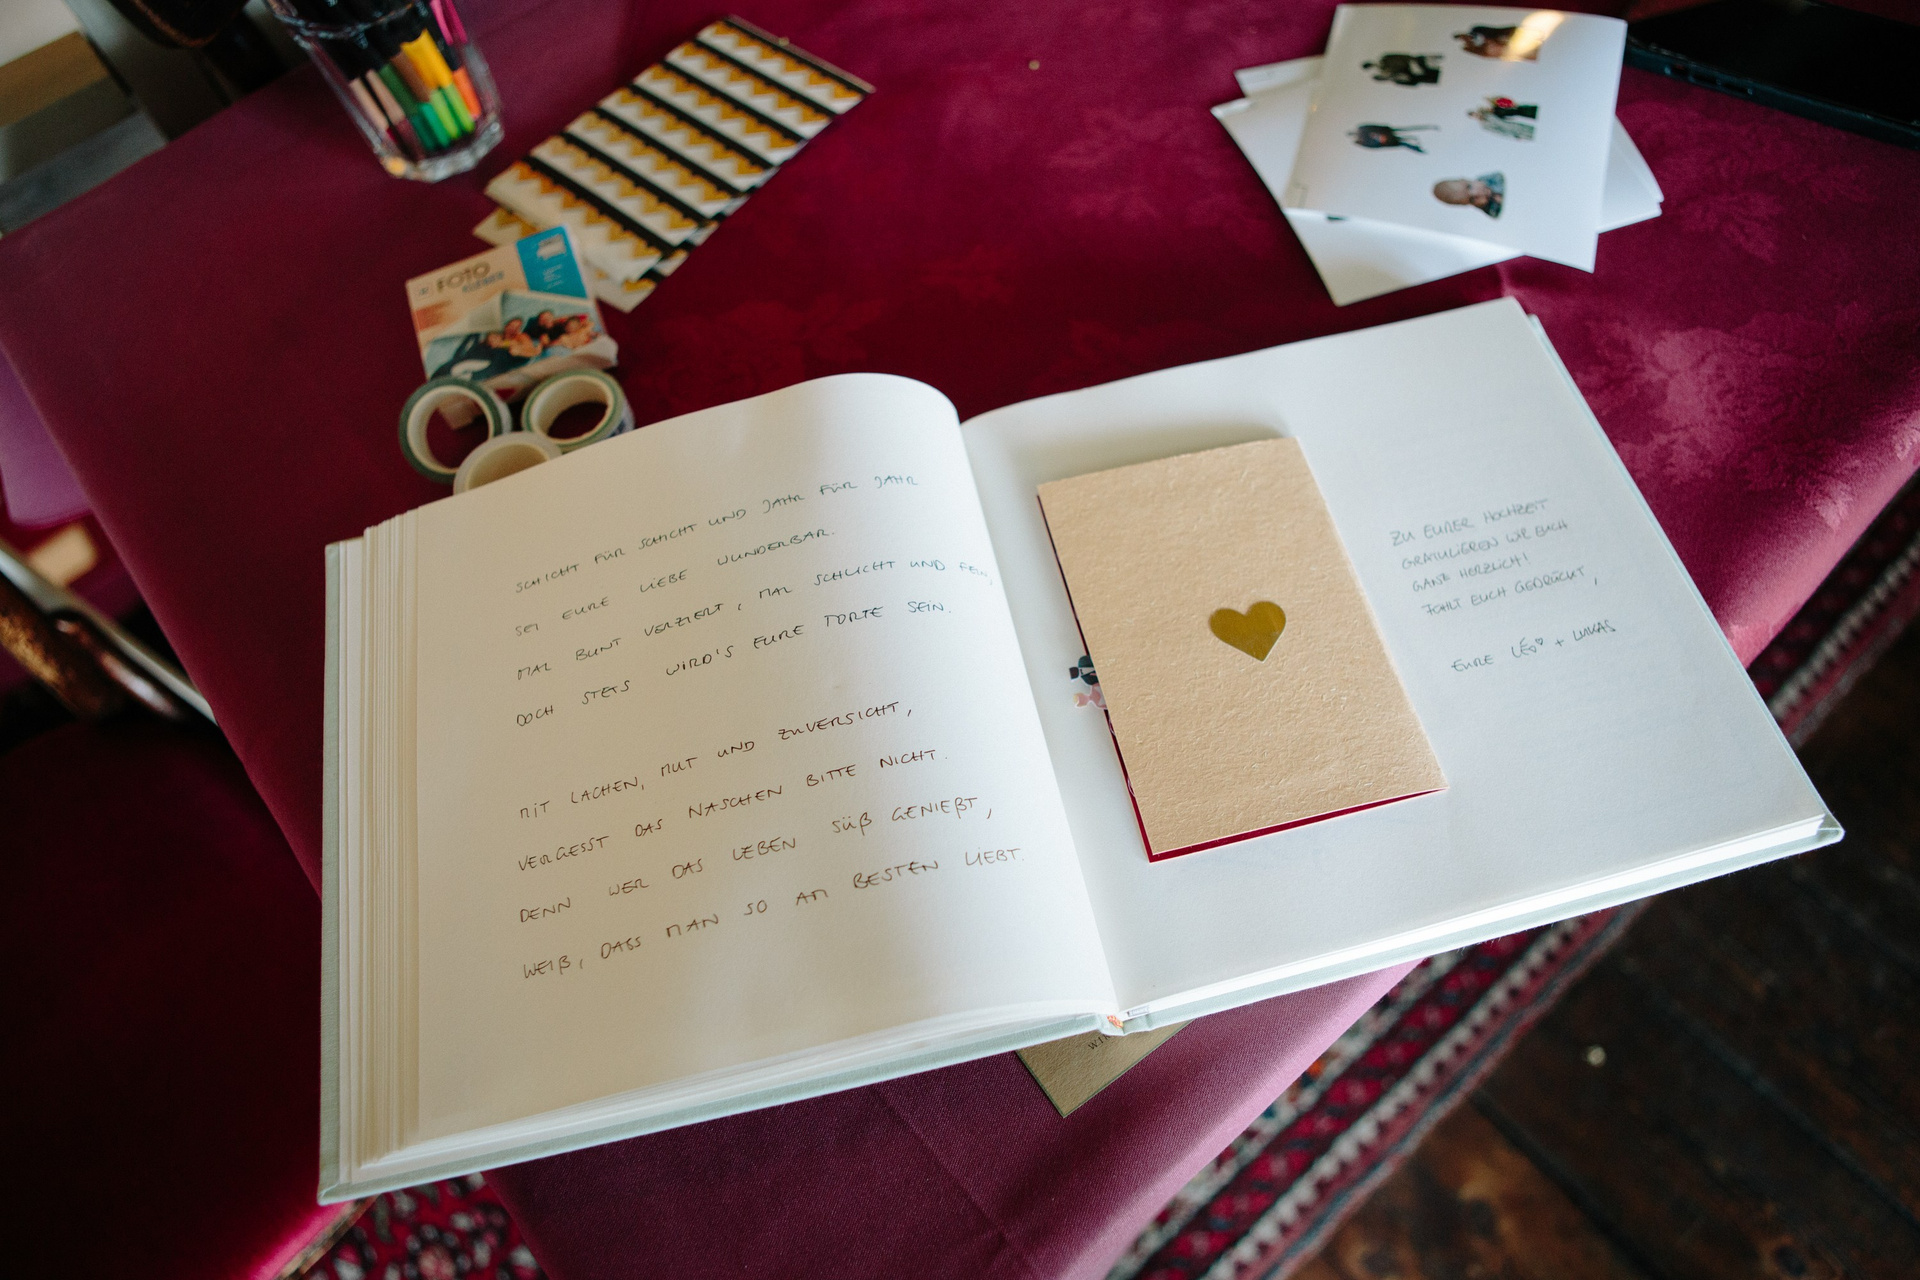 FOTO
KLEBER
SCHICHT FÜR SCHICHT UND JAHR FÜR JAHR
SEI EURE LIEBE WUNDERBAR.
MAL BUNT VERZIERT, MAL SCHLICHT UND FEIN,
DOCH STETS WIRD'S EURE TORTE SEIN.
MIT LACHEN, MUT UND ZUVERSICHT,
VERGESST DAS NASCHEN BITTE NICHT.
DENN WER DAS LEBEN SÜß GENIEßT,
WEIß, DASS MAN SO AM BESTEN LIEBT.
ZU EURER HOCHZEIT
GRATULIEREN WIR EUCH
GANZ HERZLICH!
FÜHLT EUCH GEDRÜCKT,
EURE LÉO♡ + LUKAS